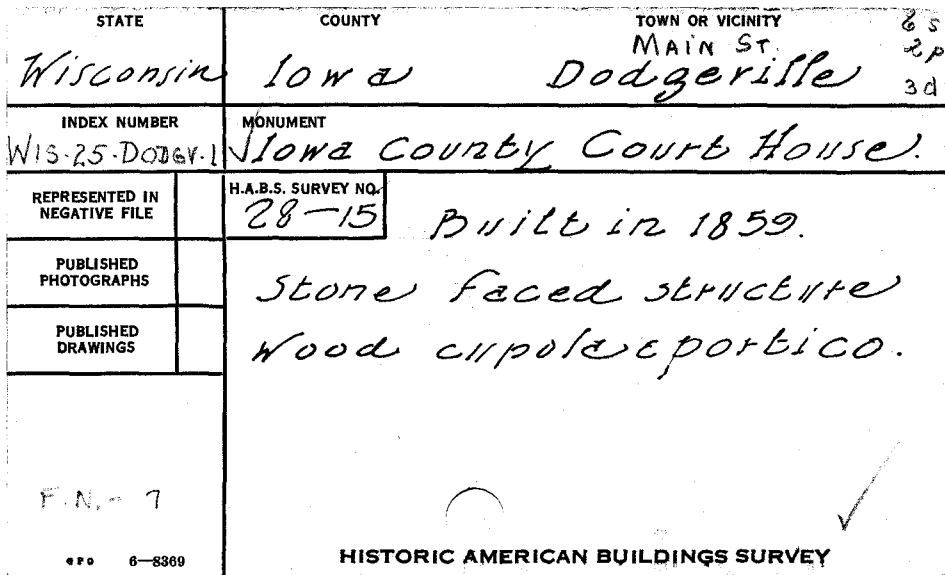 STATE COUNTY TOWN OR VICINITY
6 s
MAIN ST. 2p
Wisconsin Iowa Dodgeville 3d
INDEX NUMBER MONUMENT
WIS-25-DODGV.1 Iowa County Court House.
REPRESENTED IN NEGATIVE FILE
H.A.B.S. SURVEY NO.
28-15 Built in 1859.
PUBLISHED PHOTOGRAPHS
Stone faced structure
PUBLISHED DRAWINGS
Wood cupola & portico.
F.N.- 7
GPO 6-8369 HISTORIC AMERICAN BUILDINGS SURVEY